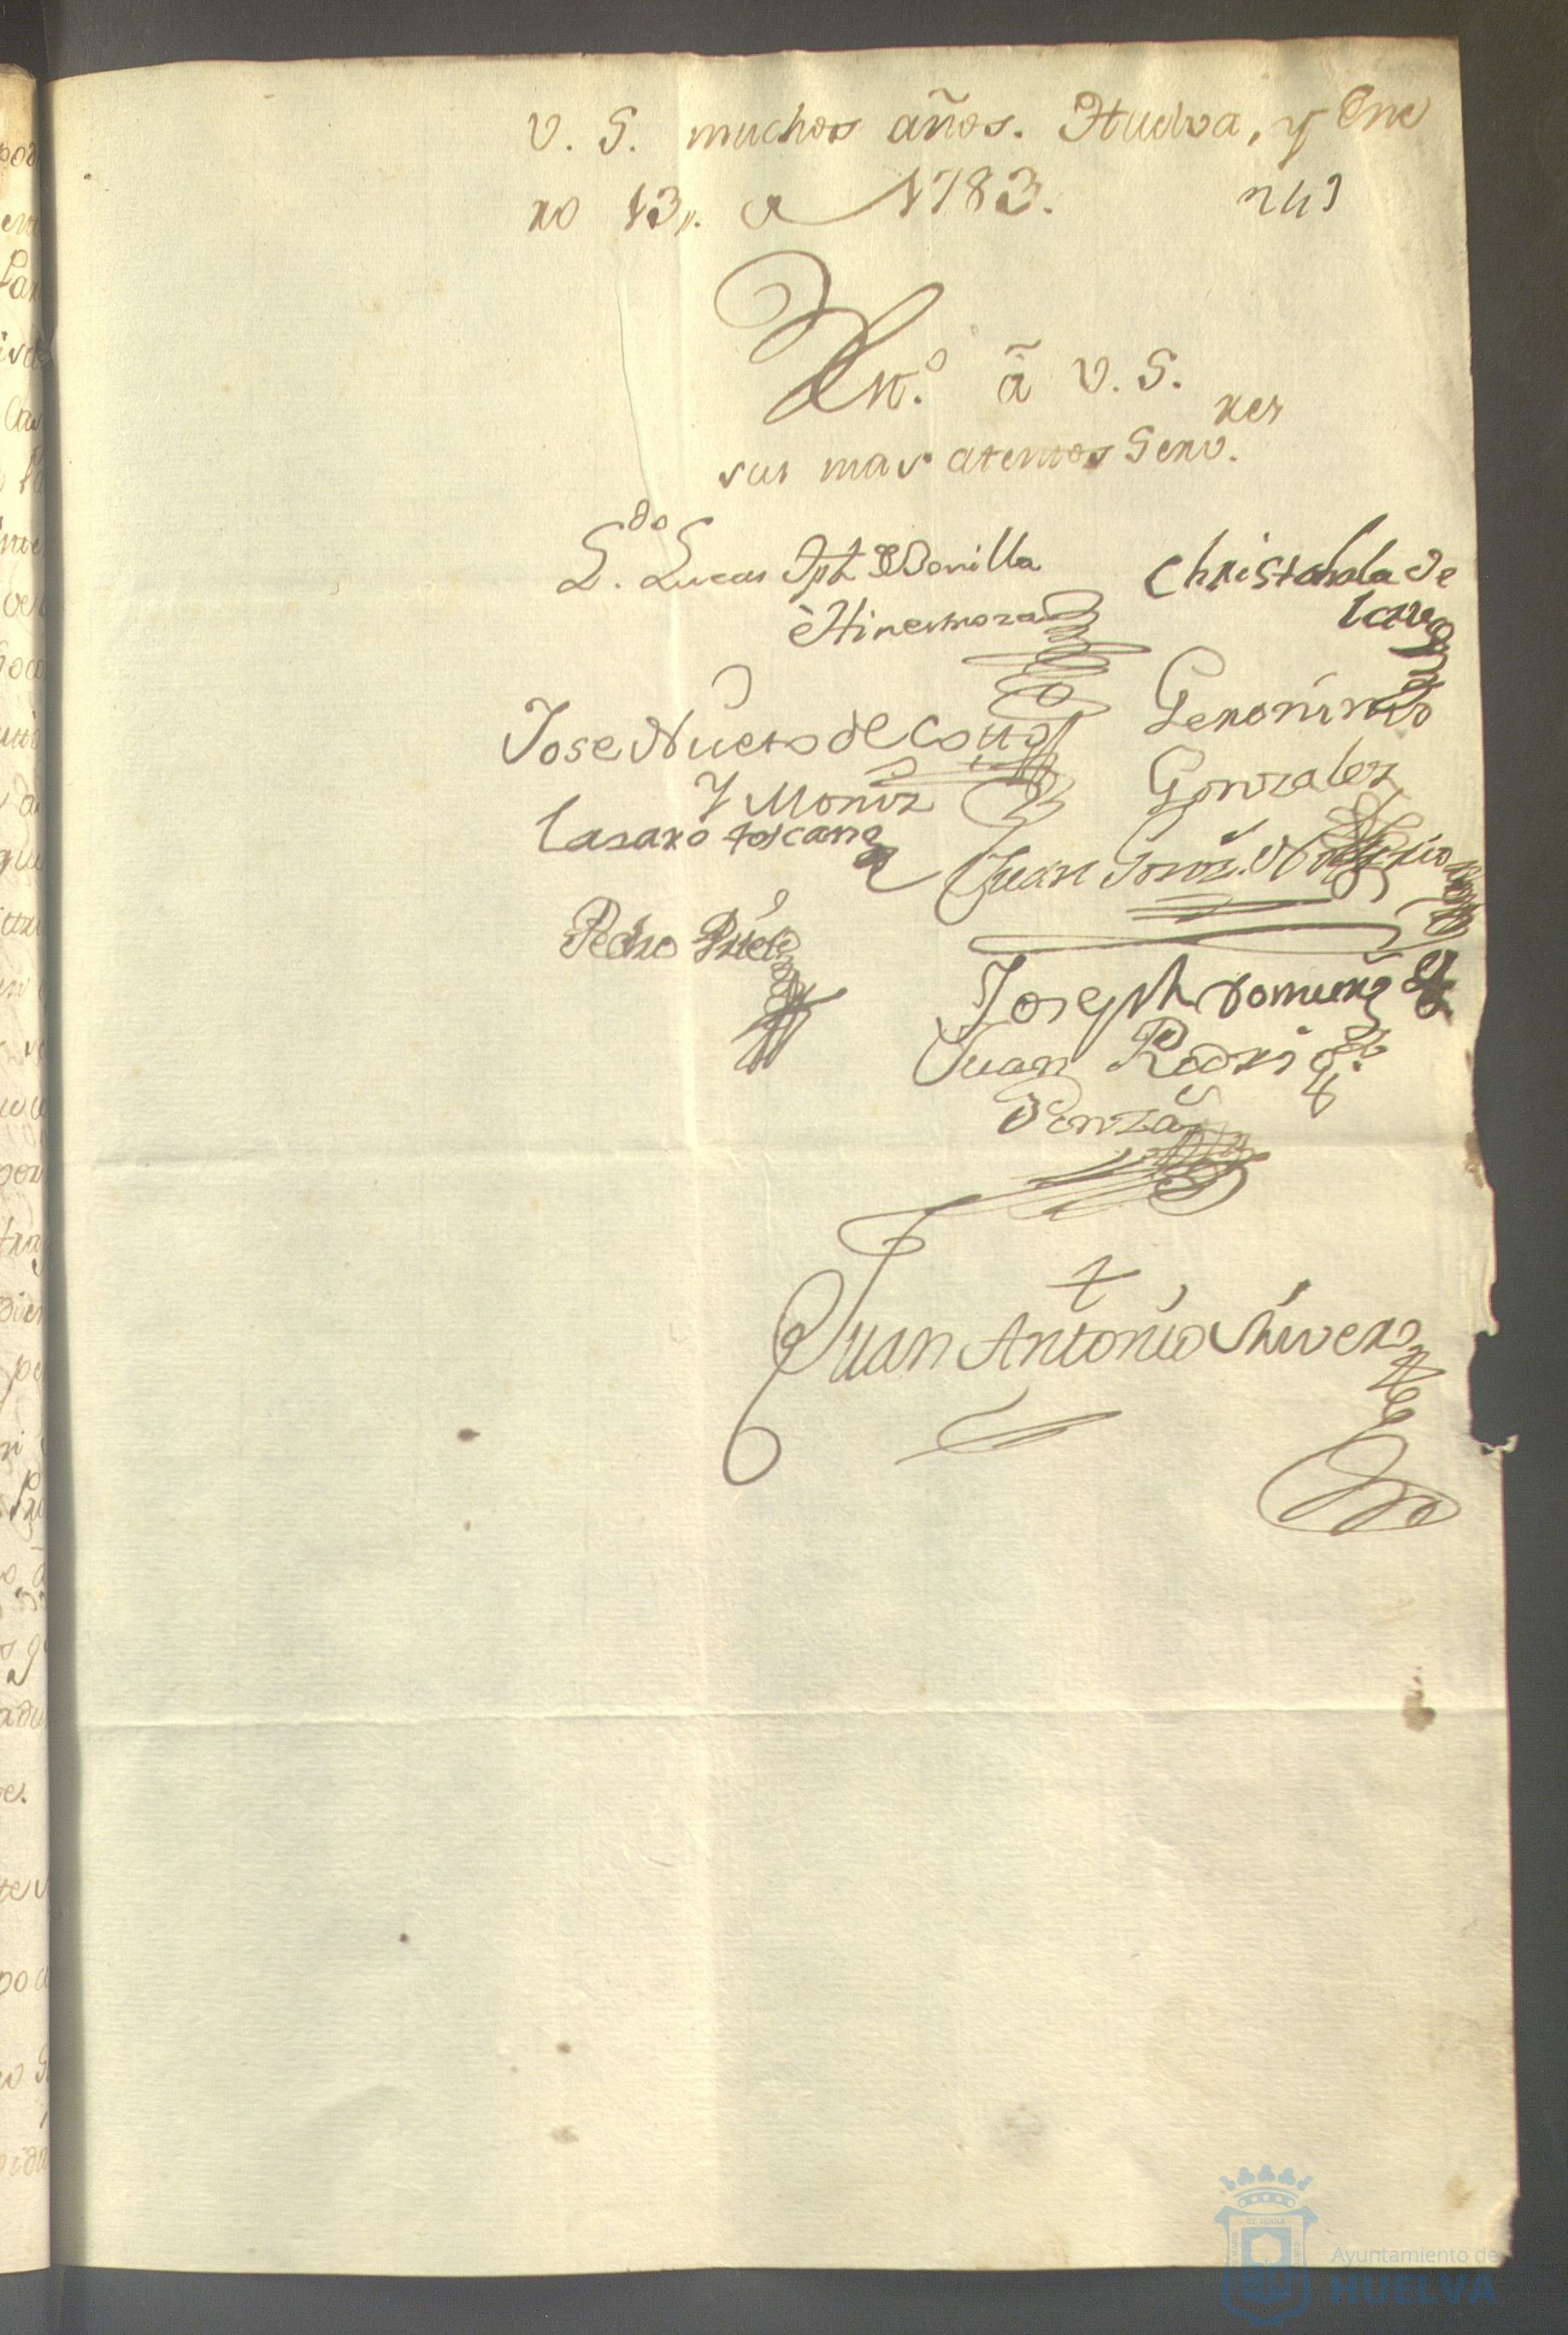 V. S. muchos años. Huelva, y Ene
ro 13,, a 1783.
Sr.º â V. S.
sus mas atentos Serv.res
L.do Lucas Jph de Bonilla
è Hinestroza
Christobal de
José Nieto del Cotto
Y Moniz
Geronimo
Gonzalez
Lasaro toscano
Juan Gonz.
Pedro Prieto
Joseph Doming
Juan Rodrig.
Ponza
Juan Antonio Rivero
Ayuntamiento de
HUELVA